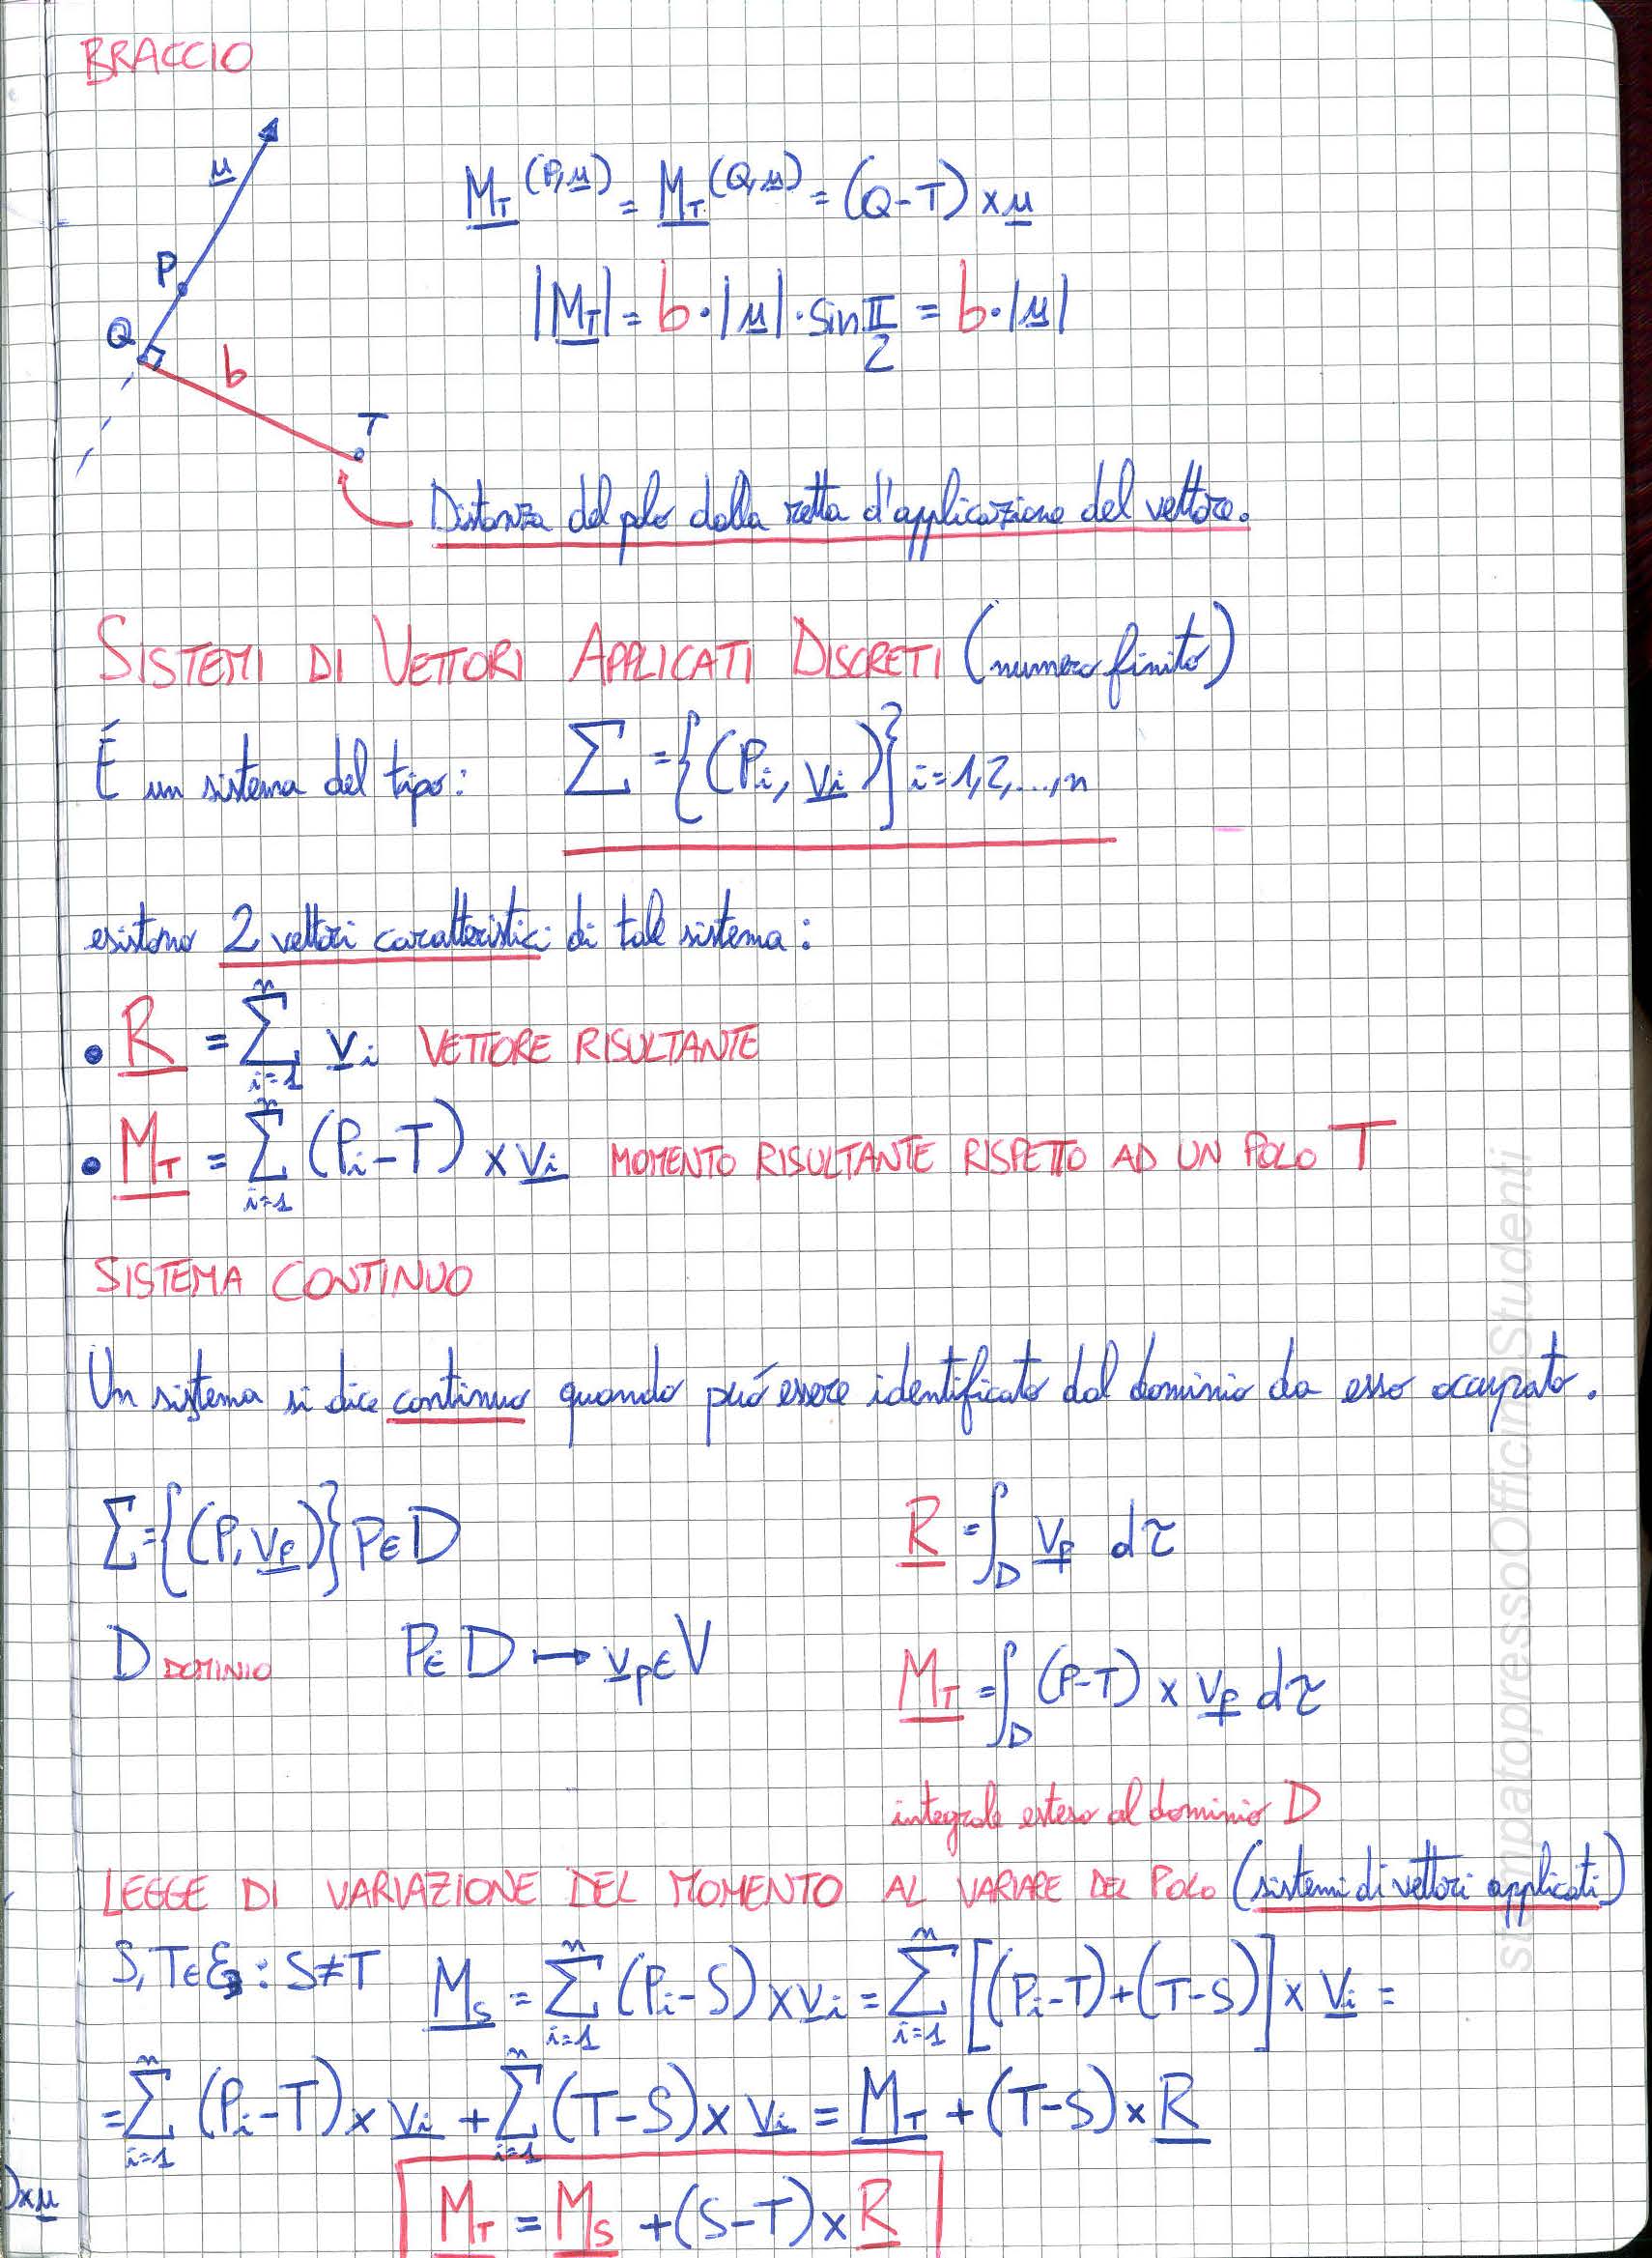 BRACCIO
u
P
Q
b
T
M_T^(P,u) = M_T^(Q,u) = (Q-T) × u
|M_T| = b·|u|·sin π/2 = b·|u|
Distanza del polo dalla retta d'applicazione del vettore.
SISTEMI DI VETTORI APPLICATI DISCRETI (numero finito)
É un sistema del tipo: Σ = {(P_i, v_i)} i=1,2,...,n
esistono 2 vettori caratteristici di tale sistema:
• R = Σ_{i=1}^n v_i VETTORE RISULTANTE
• M_T = Σ_{i=1}^n (P_i-T) × v_i MOMENTO RISULTANTE RISPETTO AD UN POLO T
SISTEMA CONTINUO
Un sistema si dice continuo quando puó essere identificato dal dominio da esso occupato.
Σ = {(P, v_P)} P∈D
R = ∫_D v_P dτ
D DOMINIO P∈D ↦ v_P∈V
M_T = ∫_D (P-T) × v_P dτ
integrale esteso al dominio D
LEGGE DI VARIAZIONE DEL MOMENTO AL VARIARE DEL POLO (sistemi di vettori applicati)
S, T∈ℰ_3 : S≠T M_S = Σ_{i=1}^n (P_i-S) × v_i = Σ_{i=1}^n [(P_i-T)+(T-S)] × v_i =
= Σ_{i=1}^n (P_i-T) × v_i + Σ_{i=1}^n (T-S) × v_i = M_T + (T-S) × R
)×u
M_T = M_S + (S-T) × R
stampatopressoOfficinaStudenti